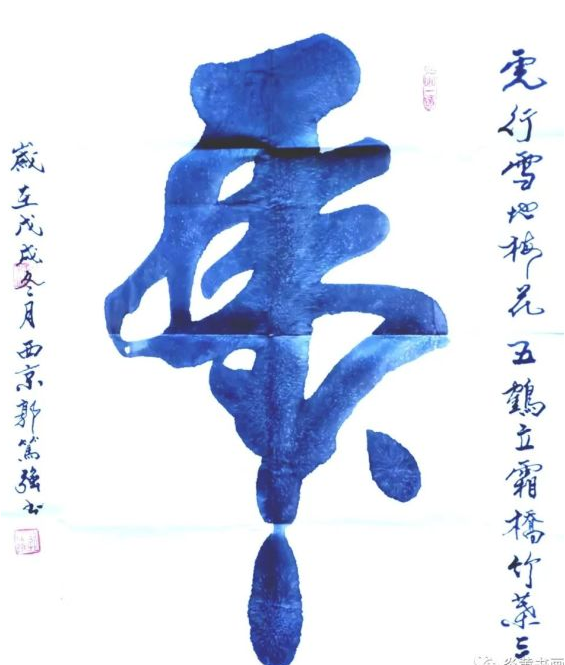 虎行雪地梅花五鶴立霜橋竹葉三
虎
歲在戊戌冬月西京郭篤強书